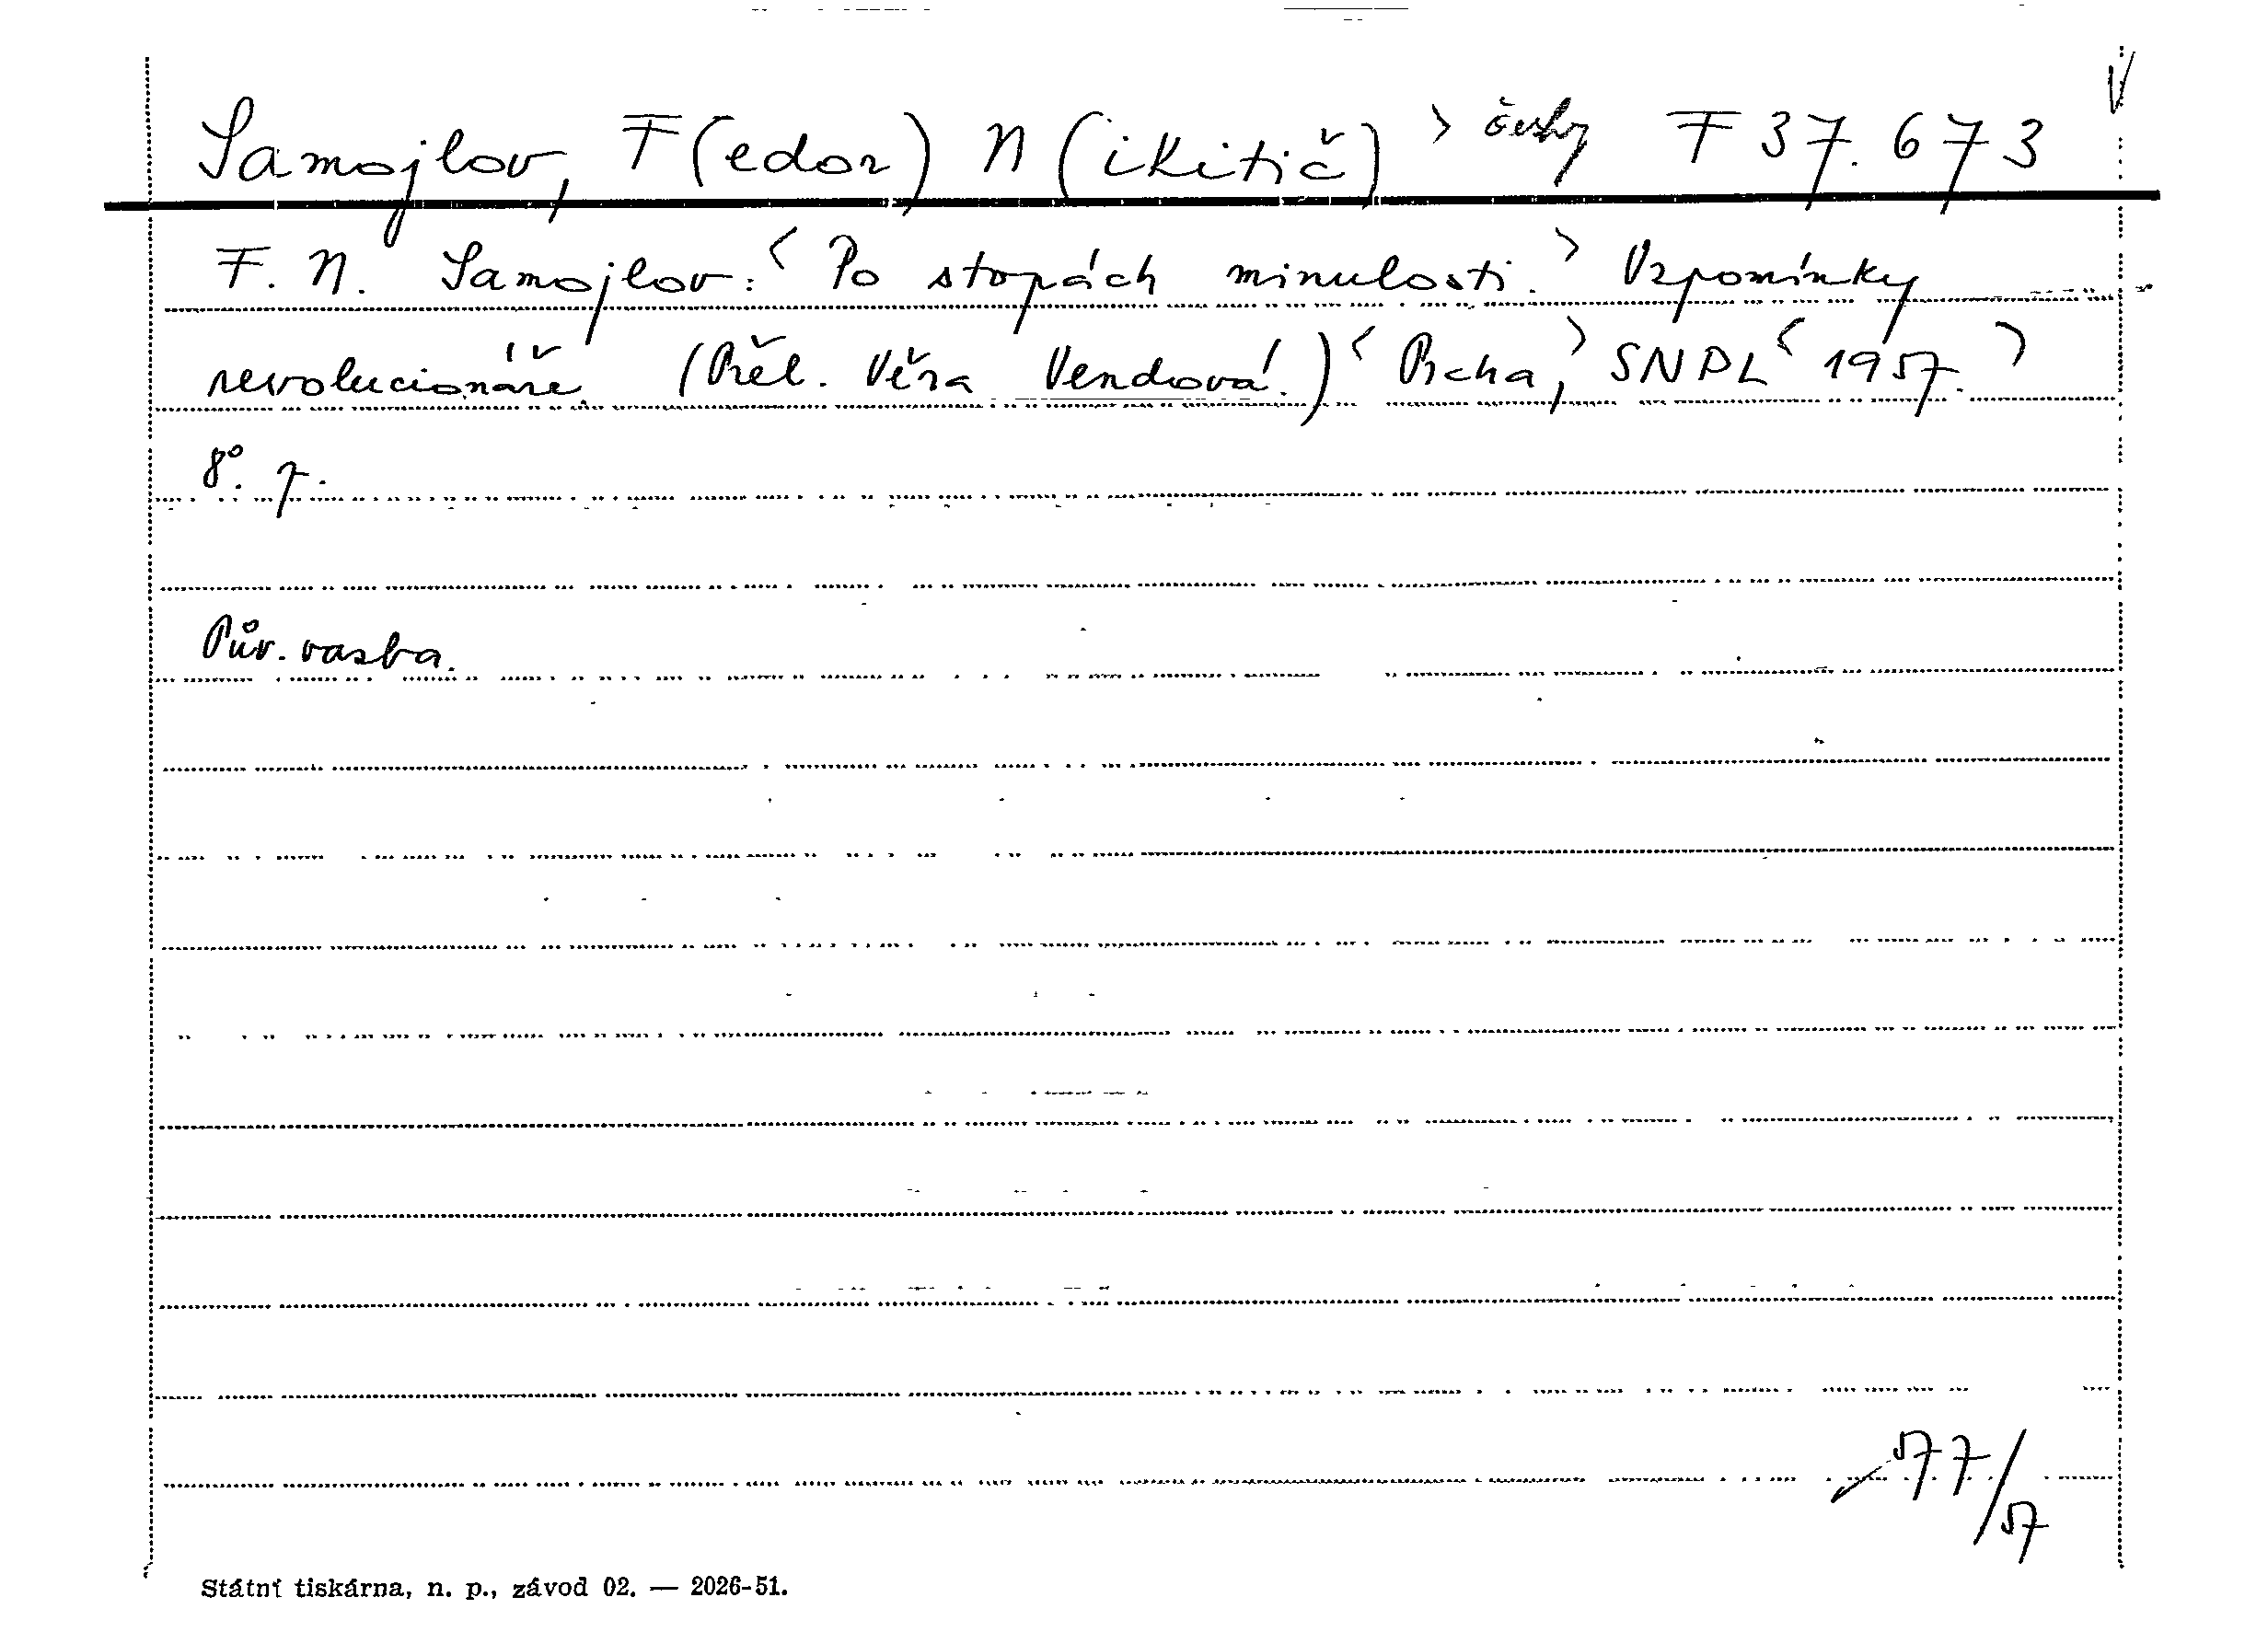 Samojlov, F(edor) N(ikitič) > česky F 37.673 V
F. N. Samojlov: < Po stopách minulosti. > Vzpomínky
revolucionáře. (Přel. Věra Vendová.) < Praha, > SNPL < 1957. >
8°. 7.
Pův. vazba.
577/57
Státní tiskárna, n. p., závod 02. — 2026-51.